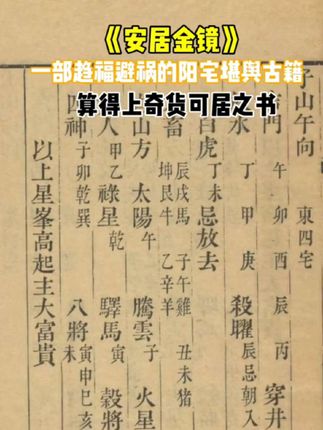 《安居金镜》
一部趋福避祸的阳宅堪舆古籍
算得上奇货可居之书
子山午向 東四宅
門 午 卯 酉 辰 丙 穿井
水 丁 甲 庚 殺曜 辰忌朝入
白虎 丁未 忌放去
畜 辰戌馬 子午雞 丑未猪
坤艮牛 乙辛羊
山方 太陽 午 騰雲 子 火星
人 甲乙 祿星 乾 驛馬 寅 穀將
四神 子卯乾巽 八將 寅申巳亥
未
以上星峯高起主大富貴